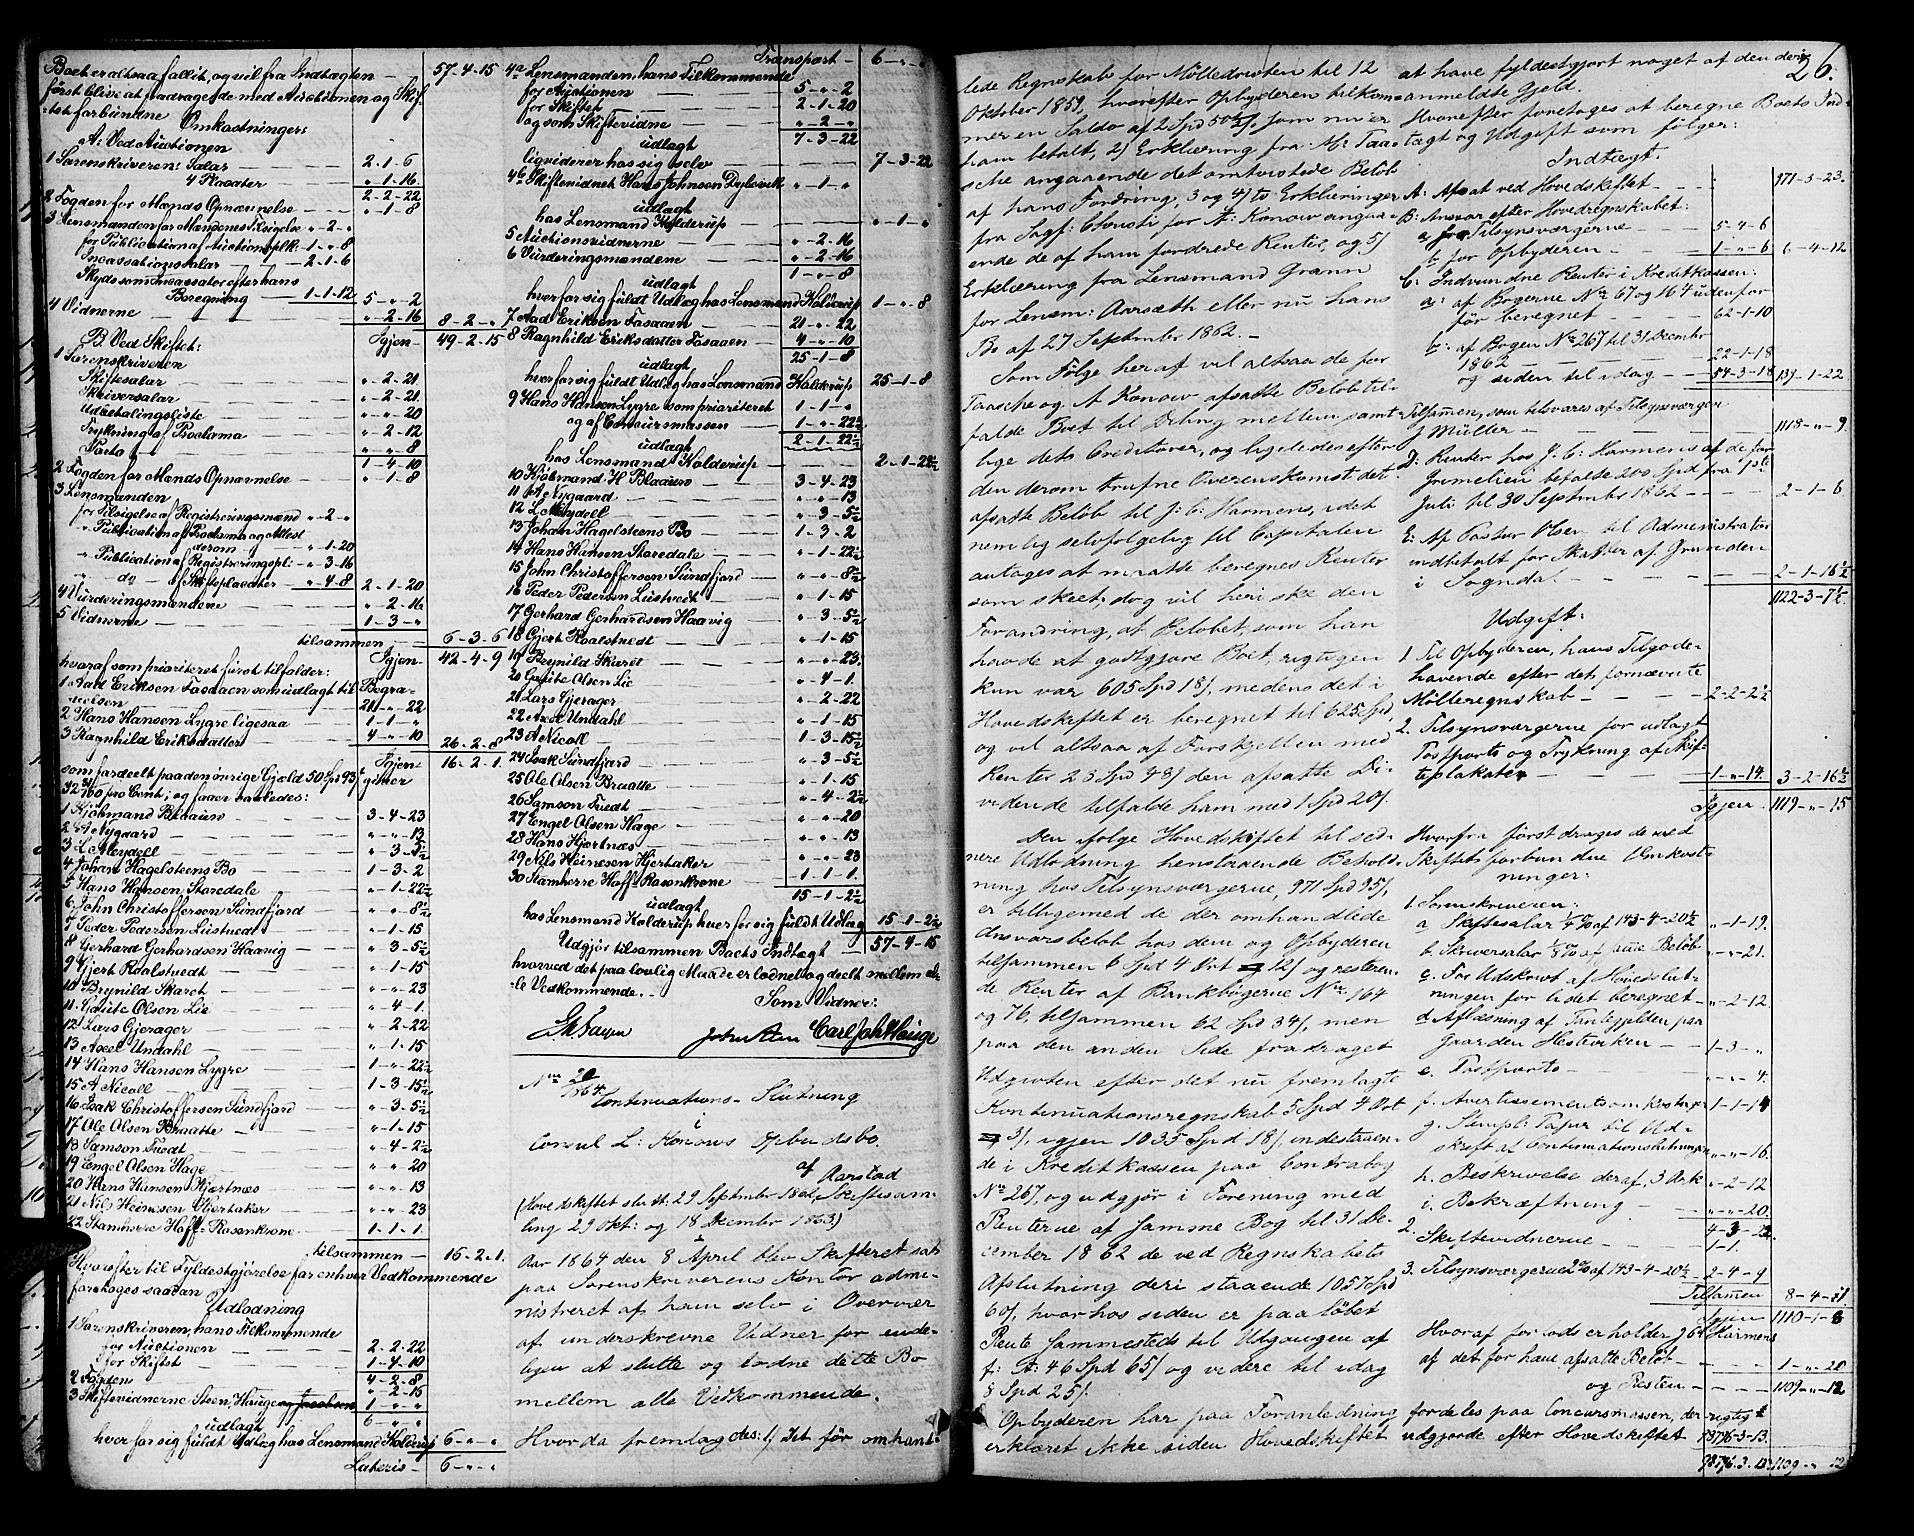 Boet er altsaa fallit, og vil fra Indtægten — 57-4-15
først blive at fradrage de med Auctionen og Skif-
tet forbundne Omkostninger:
A. Ved Auctionen
1 Sorenskriveren: Salar — 2-1-6
4 Placater — " -1-16
2-2-22
2 Fogden for Mænds Opnævnelse — " -1-8
3 Lensmanden for Mændenes Tilsigelse " -2- "
for Publication af Auctionsplk: 1- " -8
Incassationssalar — 2-1-6
Skyds som Incassator efter hans
Beregning — 1-1-12 5- " -2
4 Vidnerne — " -2-16 8-2- "
Igjen 49-2-15
B Ved Skiftet:
1 Sorenskriveren
Skiftesalar — " -2-21
Skriversalar — " -2-21
Udbetalingsliste — " - " -20
Trykning af Proclama — " -2-12
Porto — " - " 8
1-4-10
2 Fogden for Mænds Opnævnelse — " -1-8
3 Lensmanden
for Tilsigelse af Registreringsmænd " -2- "
" Publication af Proclama og Attest
derom — " -1-20
" Publication af Registreringspl: " -3-16
" do — af Skifteplacater — " -4-8 2-1-20
4 Vurderingsmændene — " -2-16
5 Vidnerne — 1-3- "
tilsammen — 6-3-6
Igjen 42-4-9
hvoraf som prioriteret først tilfalder:
1 Aad Eriksen Fasdaen som udlagt til Begra-
velsen — 21- " -22
2 Hans Hansen Lygre ligesaa 1-1- "
3 Ragnhild Eriksdatter 4- " -10 26-2-8
Igjen 16-2-1.
som fordeelt paa den øvrige Gjæld 50 Spd 93 s giver
pro Cent; og faaer saaledes:
1 Kjøbmand Blaauw 3-4-23
2 A Nygaard — " - " -13
3 L Meydell — " -3-5½
4 Johan Hagelsteens Bo — 1-3-2
5 Hans Hansen Staredale — " -1-22½
6 John Christoffersen Sundfjord — " - " -8½
7 Peder Pedersen Lustvedt — " -1-15
8 Gerhard Gerhardsen Haavig — " -3-5½
9 Gjert Roalstvedt — " -1-15
10 Brynild Skaret — " - " -23
11 Gaute Olsen Lie — " -4-1
12 Lars Gjerager — " -2-22
13 Axel Undahl — " -1-15
14 Hans Hansen Lygre — 1- " -22½
15 A Nicoll — 1-3-15½
16 Isak Christoffersen Sundfjord — " -3-5½
17 Ole Olsen Braatte — " -1-15
18 Samson Tvedt — " -4-2½
19 Engel Olsen Hage — " - " 20
20 Hans Hansen Hjertnæs — " - " 13
21 Nils Heinesen Hjertaker — " - " 23
22 Stamherre Hoff-Rosenkrone — 1-1-1
tilsammen — 16-2-1.
Hvorefter til Fyldestgjørelse for enhver Vedkommende
foretoges saadan
Udlodning
1 Sorenskriveren, hans Tilkommende
for Auctionen — 2-2-22
for Skiftet — 1-4-10
4-2-8
2 Fogden — " -2-16
3 Skiftevidnerne Steen Hauge og Jacobsen 1- " - "
6- " - "
udlagt
hver for sig fuldt Udlæg has Lensmand Kolderup 6- " - "
Lateris 6- " - "
Transport 6- " - "
4a Lensmanden, hans Tilkommende
for Auctionen — 5- " -2
for Skiftet — 2-1-20
og som Skiftevidne — " -2- "
7-3-22
udlagt
liqviderer has sig selv — 7-3-22
4b Skiftevidnet Hans Johnsen Dybsvik " -1- "
udlagt
has Lensmand Kolderup — " -1- "
5 Auctionsvidnerne — " -2-16
6 Vurderingsmændene — " -2-16
1- " -8
udlagt
hver for sig fuldt Udlæg has Lensmand Kolderup 1- " -8
7 Aad Eriksen Fasaaen — 21- " -22
8 Ragnhild Eriksdatter Fasaaen — 4- " -10
25-1-8
udlagt
hver for sig fuldt Udlæg has Lensmand Kolderup 25-1-8
9 Hans Hansen Lygre som prioriteret 1-1- "
og af Concursmassen — 1- " -22½
2-1-22½
udlagt
has Lensmand Kolderup — 2-1-22½
10 Kjøbmand H Blaauw — 3-4-23
11 A Nygaard — " - " 13
12 L Meydell — " -3-5½
13 Johan Hagelsteens Bo — 1-3-2
14 Hans Hansen Staredale — " -1-22½
15 John Christoffersen Sundfjord — " - " -8½
16 Peder Pedersen Lustveit — " -1-15
17 Gerhard Gerhardsen Haavig — " -3-5½
18 Gjert Roalstvedt — " -1-15
19 Brynild Skaret — " - " -23.
20 Gaute Olsen Lie — " -4-1.
21 Lars Gjerager — " -2-22
22 Axel Undahl — " -1-15
23 A Nicoll — 1-3-15½
24 Isak Sundfjord — " -3-5½
25 Ole Olsen Braatte — " -1-15
26 Samson Tvedt — " -4-2½
27 Engel Olsen Hage — " - " -20
28 Hans Hjertnæs — " - " -13
29 Nils Heinesen Hjertaker — " - " -23
30 Stamherre Hoff-Rosenkrone — 1-1-1.
15-1-2½
udlagt
has Lensmand Kolderup hver for sig fuldt Udlæg 15-1-2½
Udgjør tilsammen Boets Indtægt — 57-4-15
hvorved det paa lovlig Maade er lodnet og deelt mellem al-
le Vedkommende. —
Som Vidner:
Carl Joh Hauge
No 20/1864. Continuations-Slutning
i
Consul L: Konows Opbudsbo.
af Aarstad
(Hovedskiftet sluttet 29 September 1862, Skiftesam-
ling 29 Okt: og 18 December 1863)
Aar 1864 den 8 April blev Skifteret sat
paa Sorenskriverens Kontor admi-
nistreret af ham selv i Overvær
af underskrevne Vidner for ende-
ligen at slutte og lodne dette Bo
mellem alle Vedkommende.
Hvorda fremlagdes: 1/ Det før omhand-
lede Regnskab for Mølledriften til 12
Oktober 1859, hvorefter Opbyderen tilkom-
mer en Saldo af 2 Spd 50½ s, som nu er
ham betalt, 2/ Erklæring fra M: Taa-
sche angaaende det omtvistede Beløb
af hans Fordring, 3 og 4/ to Erklæringer
fra Sagf: Clousti for A: Konow angaa-
ende de af ham fordrede Renter, og 5/
Erklæring fra Lensmand Grann
for Lensm: Aarsæth eller nu hans
Bo af 27 September 1862. —
Som Følge heraf vil altsaa de for
Taasche og A Konow afsatte Beløb til-
falde Boet til Deling mellem samt-
lige dets Creditorer, og ligeledes efter
den derom trufne Overenskomst det
afsatte Beløb til J: C: Harmens, idet
nemlig selvfølgelig til Capitalen
antages at maatte beregnes Renter
som skeet; dog vil heri ske den
Forandring, at Beløbet, som han
havde at godtgjøre Boet, rigtigen
kun var 605 Spd 18 s, medens det i
Hovedskiftet er beregnet til 625 Spd,
og vil altsaa af Forskjellen med
Renter 25 Spd 48 s den afsatte Di-
vidende tilfalde ham med 1 Spd 20 s.
Den ifølge Hovedskiftet til sed-
nere Udlodning henstaaende Behold-
ning hos Tilsynsværgerne, 971 Spd 95 s,
er tilligemed de der omhandlede
Ansvarsbeløb hos dem og Opbyderen
tilsammen 6 Spd 4 Ort 12 s og resteren-
de Renter af Bankbøgerne No 164
og 76 tilsammen 62 Spd 34 s, men
paa den anden Side fradraget
Udgivten efter det nu fremlagte
Kontinuationsregnskab 5 Spd 4 Ort
3 s, igjen 1035 Spd 18 s, indestaaen-
de i Kreditkassen paa Contrabog
No 267, og udgjør i Forening med
Renterne af samme Bog til 31 De-
cember 1862 de ved Regnskabets
Afslutning deri staaende 1057 Spd
60 s, hvorhos siden er paaløbet
Rente sammesteds til Udgangen af
f: A: 46 Spd 65 s og videre til idag
8 Spd 25 s.
Opbyderen har paa Foranledning
erklæret ikke siden Hovedskiftet
26.
at have fyldestgjort noget af den deri
anmeldte Gjeld.
Hvorefter foretoges at beregne Boets Ind-
tægt og Udgift som følger:
Indtægt.
A: Afsat ved Hovedskiftet — 971-3-23.
B: Ansvar efter Hovedregnskabet:
a for Tilsynsværgerne — 5-4-6
b for Opbyderen — 1- " -6 6-4-12
C: Indvundne Renter i Kreditkassen:
a: af Bøgerne No 67 og 164 udenfor
før beregnet — 62-1-10
b: af Bogen No 267 til 31 December
1862 — 22-1-18
og siden til idag — 54-3-18 139-1-22
Tilsammen, som tilsvares af Tilsynsværgen
J Müller — 1118- " -9.
D: Renter hos J. C: Harmens af de for
Grumelien betalte 200 Spd fra 1ste
Juli til 30 September 1862 — 2-1-6
E: Af Pastor Olsen til Administrator
indbetalt for Skatter af Grunden
i Sogndal — 2-1-16½
1122-3-7½.
Udgift:
1 Til Opbyderen, hans Tilgode-
havende efter det fornævnte
Mølleregnskab — 2-2-2½
2. Tilsynsværgerne for udlagt
Postporto og Trykning af Skif-
teplakater — 1- " -14. 3-2-16½
Igjen 1119- " -15
Hvorfra først drages de med
Skiftet forbundne Omkost-
ninger:
1. Sorenskriveren:
a Skiftesalar ¼% af 143-4-20½ " -1-19.
b. Skriversalar ⅛% af samme Beløb " - " -21.
c. For Udskrivt af Hovedslut-
ningen for lidet beregnet — " -2-12
d. Aflæsning af Panthefte paa
Gaarden Hestvikен — 1-3- "
e. Postporto — " - " -4.
f. Avertissementsomkostnger 1-1-14
g. Stempl: Papir til Ud-
skrift af Continuationsslutningen " - " -16.
h. Beskrivelse deraf, 3 Ark " -2-12
i. Bekræftning — " - " -20.
4-3-22
2. Skiftevidnerne — 1-1-
3. Tilsynsværgerne 2% af 143-4-20½ 2-4-9
Tilsammen 8-4-21
Igjen 1110-1-6
Hvoraf forlods erholder J C: Harmens
af det for ham afsatte Beløb — 1- " -20
og Resten — 1109- " -12
fordeles paa Concursmassen, der rigtigst
udgjorde efter Hovedskiftet
1109- " -12